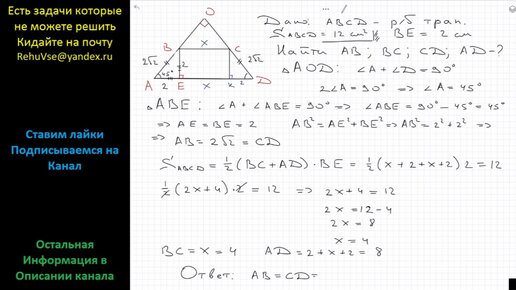 Есть задачи которые
не можете решить
Кидайте на почту
RehuVse@yandex.ru
Ставим лайки
Подписываемся на
Канал
Остальная
Информация в
Описании канала
O
B x C
2√2 2 2√2
45°
A 2 E x K 2 D
Дано: ABCD – р/б трап.
S_ABCD = 12 см² BE = 2 см
Найти AB; BC; CD; AD-?
△ AOD: ∠A + ∠D = 90°
2∠A = 90° => ∠A = 45°
△ ABE: ∠A + ∠ABE = 90° => ∠ABE = 90° – 45° = 45°
=> AE = BE = 2 AB² = AE² + BE² => AB² = 2² + 2² =>
=> AB = 2√2 = CD
S_ABCD = 1/2 (BC + AD) · BE = 1/2 (x + 2 + x + 2) 2 = 12
1/2 (2x + 4) · 2 = 12 => 2x + 4 = 12
2x = 12 – 4
2x = 8
x = 4
BC = x = 4 AD = 2 + x + 2 = 8
Ответ: AB = CD =